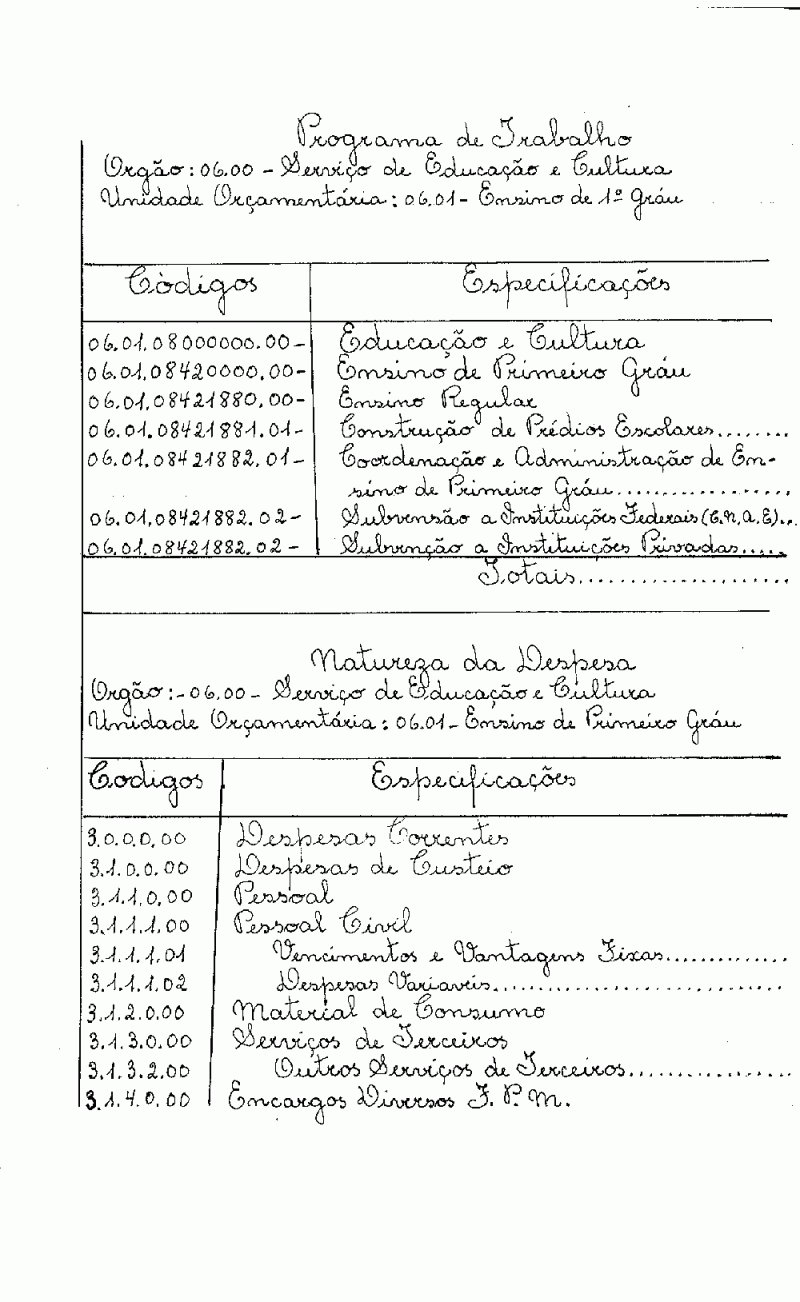 Programa de Trabalho
Orgão: 06.00 - Serviço de Educação e Cultura
Unidade Orçamentária: 06.01 - Ensino de 1º Gráu
Códigos Especificações
06.01.08000000.00- Educação e Cultura
06.01.08420000.00- Ensino de Primeiro Gráu
06.01.08421880.00- Ensino Regular
06.01.08421881.01- Construção de Prédios Escolares........
06.01.08421882.01- Coordenação e Administração de En-
sino de Primeiro Gráu..................
06.01.08421882.02- Subvensão a Instituições Federais (C.N.A.E)...
06.01.08421882.02- Subvenção a Instituições Privadas.....
Totais......................
Natureza da Despesa
Orgão:- 06.00 - Serviço de Educação e Cultura
Unidade Orçamentária: 06.01- Ensino de Primeiro Gráu
Codigos Especificações
3.0.0.0.00 Despesas Correntes
3.1.0.0.00 Despesas de Custeio
3.1.1.0.00 Pessoal
3.1.1.1.00 Pessoal Civil
3.1.1.1.01 Vencimentos e Vantagens Fixas.............
3.1.1.1.02 Despesas Variaveis..............................
3.1.2.0.00 Material de Consumo
3.1.3.0.00 Serviços de Terceiros
3.1.3.2.00 Outros Serviços de Terceiros.................
3.1.4.0.00 Encargos Diversos F. P. M.